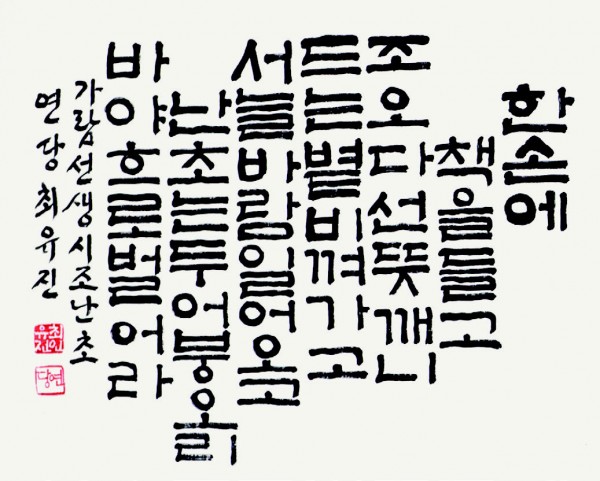 한손에
책을들고
조오다선뜻깨니
드는볕비껴가고
서늘바람일어오고
난초는두어봉오리
바야흐로벌어라
가람선생시조난초
연당최유진
최인유진
연당